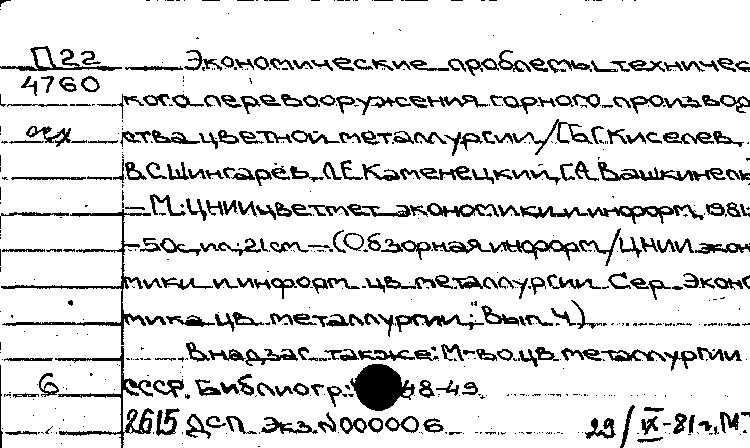 П22 Экономические проблемы техничес
4760 кого перевооружения горного производ
ства цветной металлургии/[Б.Г.Киселев,
В.С.Шингарёв, Л.Е.Каменецкий, Г.А.
– М.: ЦНИИцветмет экономики и информ, 1981
– 50с., ил.; 21см – (Обзорная информ/ЦНИИ эконо
мики и информ цв металлургии Сер. Эконо
мика цв. металлургии; Вып. 4).
В надзаг также: М-во цв металлургии
6 СССР. Библиогр.: 48-49.
2615 ДСП Экз. N000006 29/IX-81г.